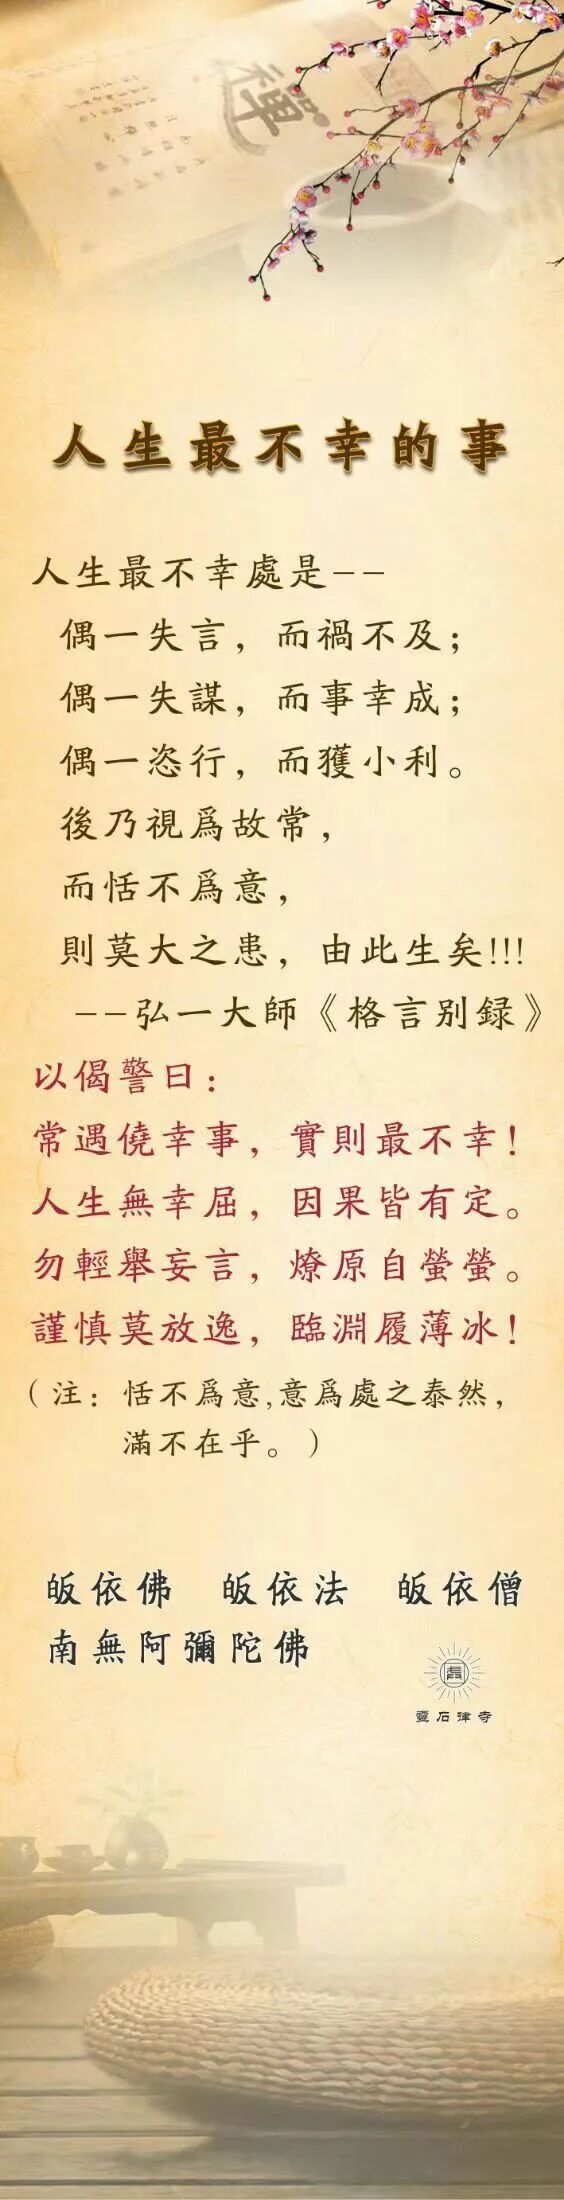 禪
人生最不幸的事
人生最不幸處是--
偶一失言，而禍不及；
偶一失謀，而事幸成；
偶一恣行，而獲小利。
後乃視爲故常，
而恬不爲意，
則莫大之患，由此生矣!!!
--弘一大師《格言别録》
以偈警曰：
常遇僥幸事，實則最不幸！
人生無幸屈，因果皆有定。
勿輕舉妄言，燎原自螢螢。
謹慎莫放逸，臨淵履薄冰！
（注：恬不爲意,意爲處之泰然，
滿不在乎。）
皈依佛 皈依法 皈依僧
南無阿彌陀佛
靈石律寺